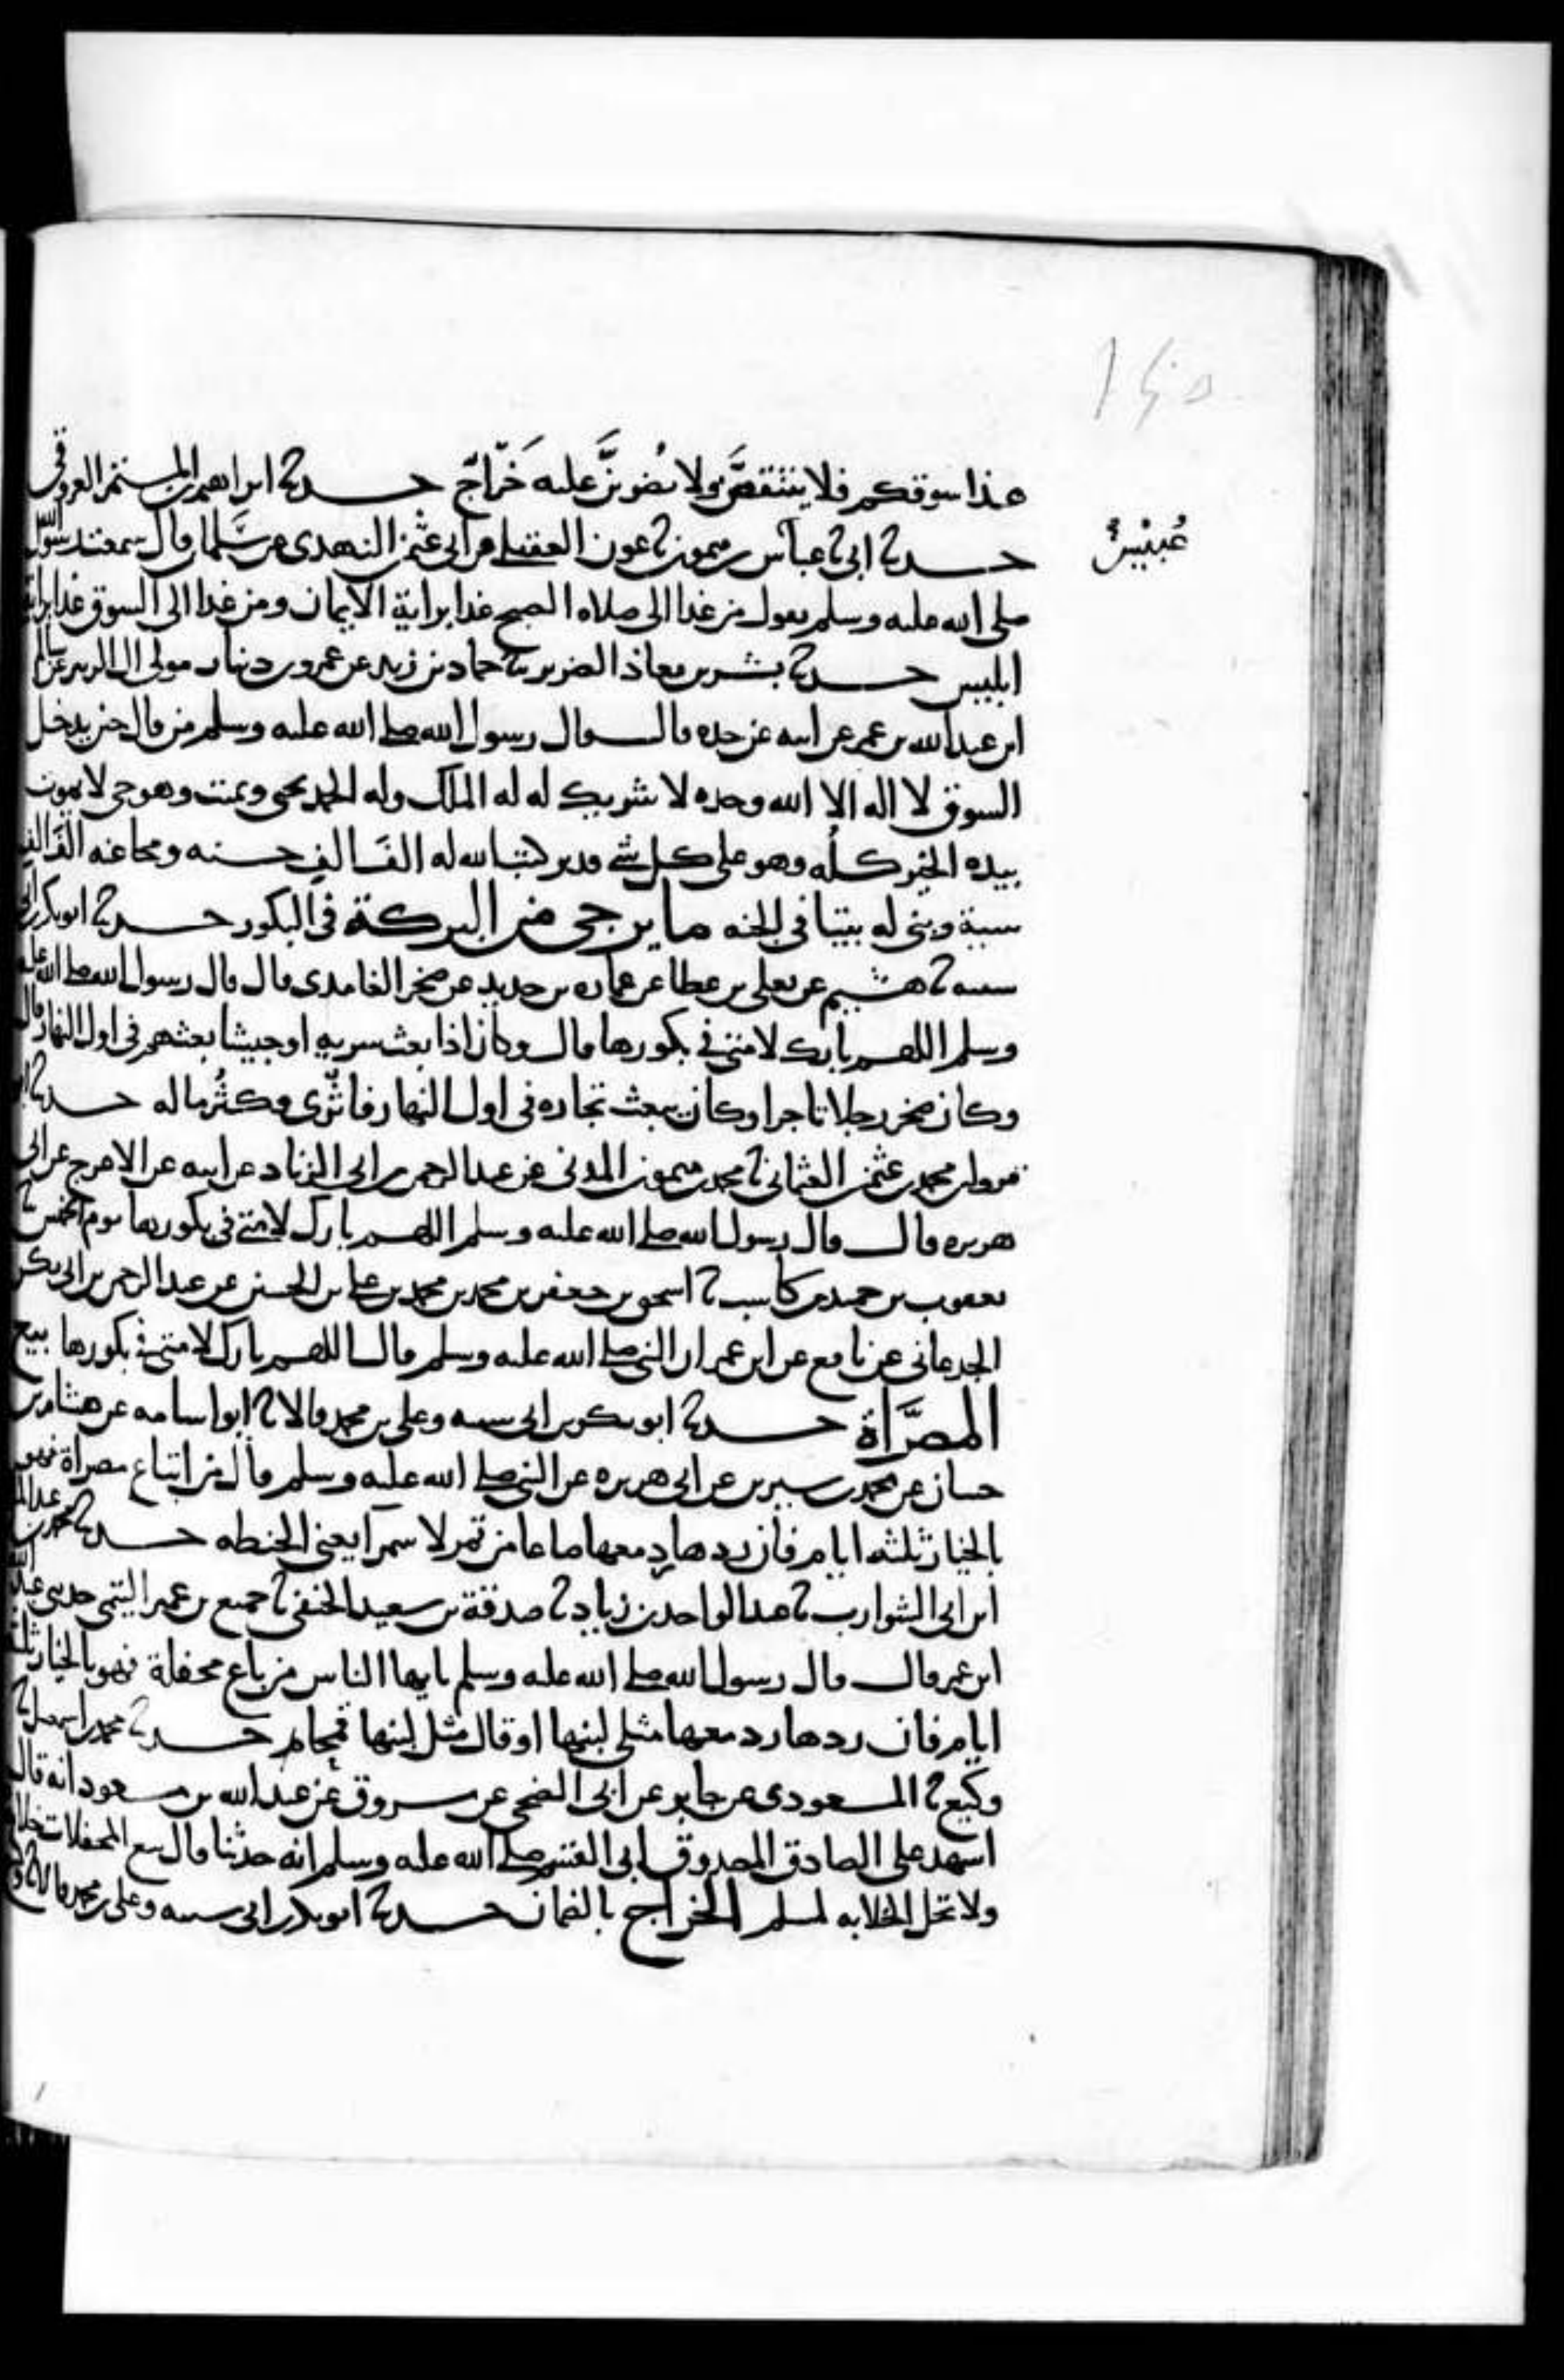 ١٤٥
هذا سوقكم فلا ينتقصن ولا يضربن عليه خراج حدثنا ابراهيم بن المستمر العروقي
عُبَيْسُ
حدثنا ابي نا عباس بن ميمون نا عون العقيلي عن ابي عثمن النهدي عن سلمان قال سمعت رسول الله
صلى الله عليه وسلم يقول من غدا الى صلاه الصبح غدا براية الايمان ومن غدا الى السوق غدا براية
ابليس حدثنا بشر بن معاذ الضرير نا حماد بن زيد عن عمرو بن دينار مولى ال الزبير عن سالم
ابن عبد الله بن عمر عن ابيه عن جده قال قال رسول الله صلى الله عليه وسلم من قال حين يدخل
السوق لا اله الا الله وحده لا شريك له له الملك وله الحمد يحيي ويميت وهو حي لا يموت
بيده الخير كله وهو على كل شي قدير كتب الله له الف الف حسنه ومحا عنه الف الف
سيئة وبنى له بيتا في الجنه ما يرجى من البركة في البكور حدثنا ابو بكر بن ابي
شيبه نا هشيم عن يعلى بن عطا عن عماره بن حديد عن صخر الغامدي قال قال رسول الله صلى الله عليه
وسلم اللهم بارك لامتي في بكورها قال وكان اذا بعث سريه او جيشا بعثهم في اول النهار قال
وكان صخر رجلا تاجرا وكان يبعث تجاره في اول النهار فاثرى وكثر ماله حدثنا ابو
مروان محمد بن عثمن العثماني نا محمد بن ميمون المدني عن عبد الرحمن بن ابي الزناد عن ابيه عن الاعرج عن ابي
هريره قال قال رسول الله صلى الله عليه وسلم اللهم بارك لامتي في بكورها يوم الخميس نا
يعقوب بن حميد بن كاسب نا اسحق بن جعفر بن محمد بن محمد بن علي بن الحسين عن عبد الرحمن بن ابي بكر
الجدعاني عن نافع عن ابن عمر ان النبي صلى الله عليه وسلم قال اللهم بارك لامتي في بكورها بيع
المصراة حدثنا ابو بكر بن ابي شيبه وعلي بن محمد قالا نا ابو اسامه عن هشام بن
حسان عن محمد بن سيرين عن ابي هريره عن النبي صلى الله عليه وسلم قال من ابتاع مصراة فهو
بالخيار ثلثه ايام فان ردها رد معها صاعا من تمر لا سمرا يعني الحنطه حدثنا محمد بن عبد الملك
ابن ابي الشوارب نا عبد الواحد بن زياد نا صدقة بن سعيد الحنفي نا جميع بن عمير التيمي حدثني عبد الله
ابن عمر قال قال رسول الله صلى الله عليه وسلم يايها الناس من باع محفلة فهو بالخيار ثلثة
ايام فان ردها رد معها مثلي لبنها او قال مثل لبنها قمحا حدثنا محمد بن اسمعيل نا
وكيع نا المسعودي عن جابر عن ابي الضحى عن مسروق عن عبد الله بن مسعود انه قال
اشهد على الصادق المصدوق ابي القسم صلى الله عليه وسلم انه حدثنا قال بيع المحفلات خلابة
ولا تحل الخلابه لمسلم الخراج بالضمان حدثنا ابو بكر بن ابي شيبه وعلي بن محمد قالا نا